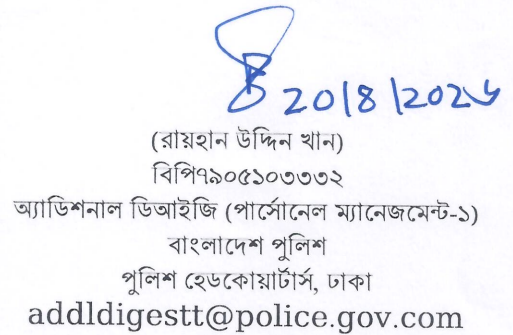 20/8/2026
(রায়হান উদ্দিন খান)
বিপি৭৯০৫১০৩৩৩২
অ্যাডিশনাল ডিআইজি (পার্সোনেল ম্যানেজমেন্ট-১)
বাংলাদেশ পুলিশ
পুলিশ হেডকোয়ার্টার্স, ঢাকা
addldigestt@police.gov.com